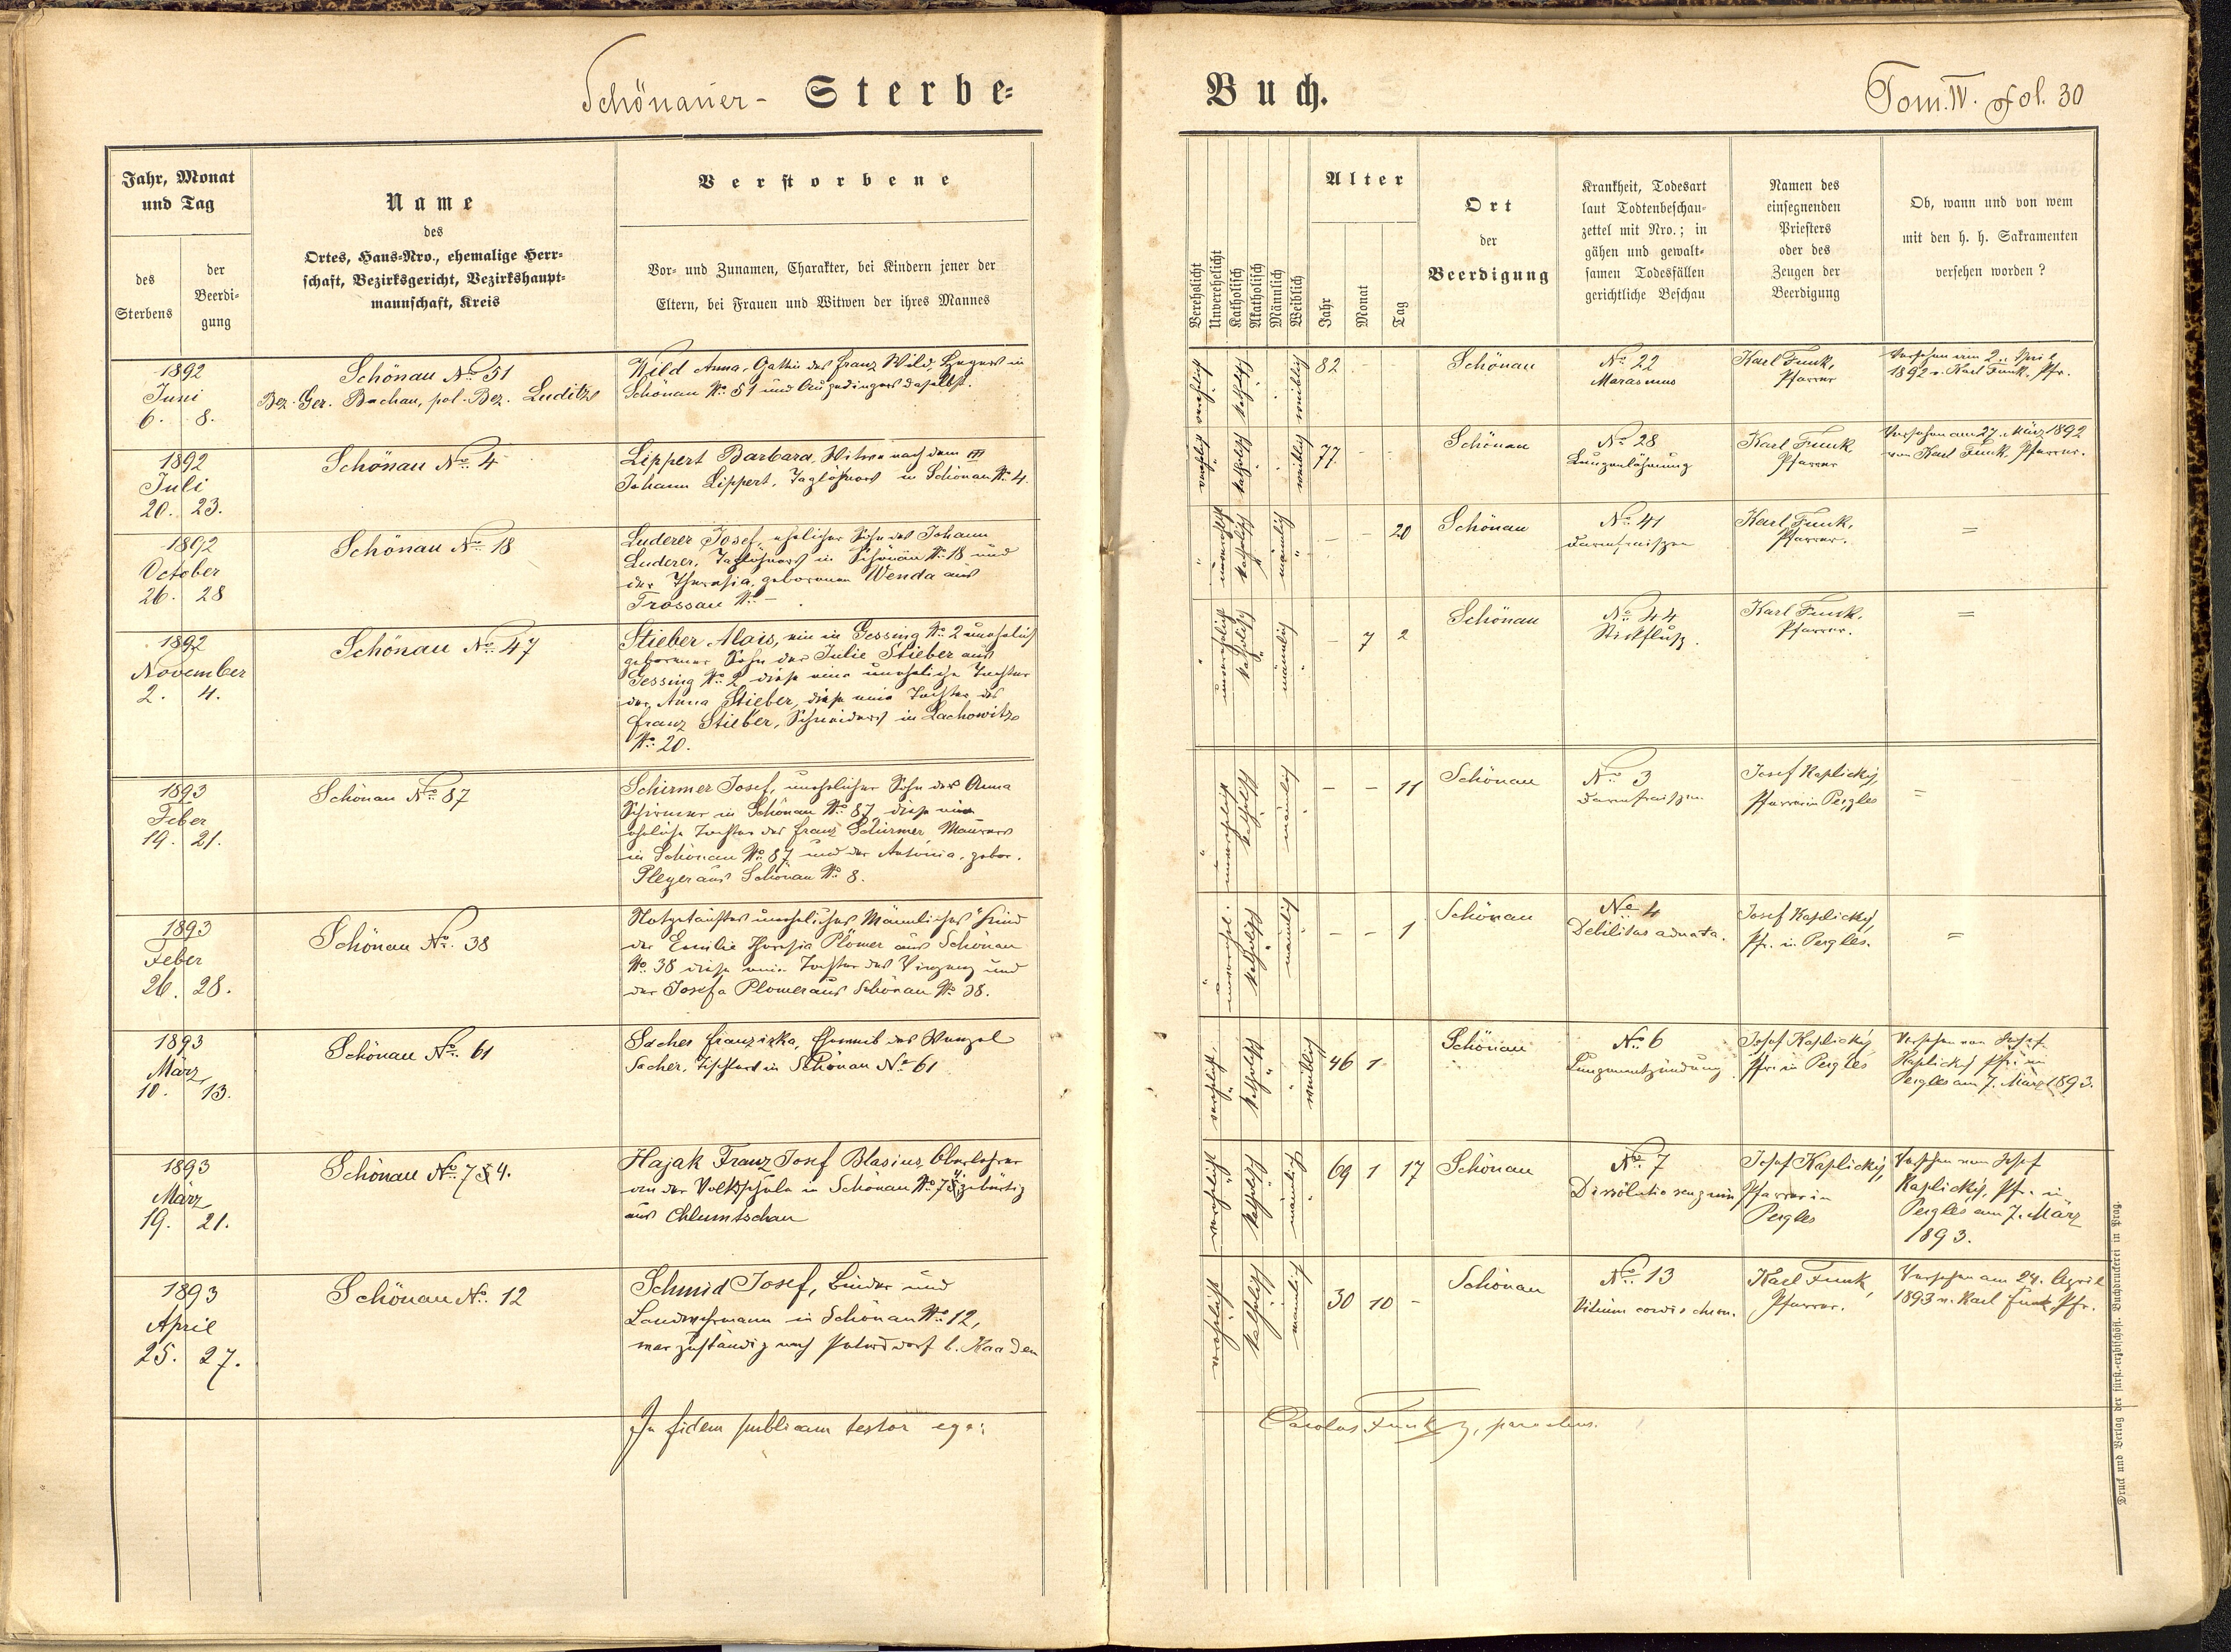 Schönauer - Sterbe=
Buch.
Tom. IV. fol. 30
Jahr, Monat
und Tag
des
Sterbens
der
Beerdi=
gung
Name
des
Ortes, Haus-Nro., ehemalige Herr=
schaft, Bezirksgericht, Bezirkshaupt=
mannschaft, Kreis
Verstorbene
Vor- und Zunamen, Charakter, bei Kindern jener der
Eltern, bei Frauen und Witwen der ihres Mannes
Verehelicht
Unverehelicht
Katholisch
Akatholisch
Männlich
Weiblich
Alter
Jahr
Monat
Tag
Ort
der
Beerdigung
Krankheit, Todesart
laut Todtenbeschau=
zettel mit Nro.; in
gähen und gewalt=
samen Todesfällen
gerichtliche Beschau
Namen des
einsegnenden
Priesters
oder des
Zeugen der
Beerdigung
Ob, wann und von wem
mit den h. h. Sakramenten
versehen worden?
1892
Juni
6. 8.
Schönau No. 51
Bez. Ger. Buchau, pol. Bez. Luditz
Wild Anna, Gattin des Franz Wild, Hegers in
Schönau No. 51 und Ausgedingers daselbst.
verehelicht
katholisch
weiblich
82 - -
Schönau
No. 22
Marasmus
Karl Funk,
Pfarrer
Versehen am 2. April
1892 v. Karl Funk, Pfr.
1892
Juli
20. 23.
Schönau No. 4
Lippert Barbara, Witwe nach dem
Johann Lippert, Taglöhners in Schönau No. 4.
verehelicht
katholisch
weiblich
77 - -
Schönau
No. 28
Lungenlähmung
Karl Funk,
Pfarrer
Versehen am 27. März 1892
von Karl Funk, Pfarrer.
1892
October
26. 28
Schönau No. 18
Luderer Josef, ehelicher Sohn des Johann
Luderer, Taglöhners in Schönau No. 18 und
der Theresia, geborenen Wenda aus
Trossau No. -
unverehelicht
katholisch
männlich
- - 20
Schönau
No. 41
Darmfraisen
Karl Funk,
Pfarrer.
=
1892
November
2. 4.
Schönau No. 47
Stieber Alois, ein in Gessing No. 2 unehelich
geborener Sohn der Julie Stieber aus
Gessing No. 2, diese eine uneheliche Tochter
der Anna Stieber, diese eine Tochter des
Franz Stieber, Schneiders in Lachowitz
No. 20.
unverehelicht
katholisch
männlich
- 7 2
Schönau
No. 44
Stickfluß.
Karl Funk,
Pfarrer.
=
1893
Feber
19. 21.
Schönau No. 87
Schirmer Josef, unehelicher Sohn der Anna
Schirmer in Schönau No. 87, diese eine
eheliche Tochter des Franz Schirmer, Maurers
in Schönau No. 87 und der Antonia, gebor.
Pleyer aus Schönau No. 8.
unverehelicht
katholisch
männlich
- - 11
Schönau
No. 3
Darmfraisen
Josef Kaplický,
Pfarrer in Pergles
=
1893
Feber
26. 28.
Schönau No. 38
Notgetauftes uneheliches "Männliches" Kind
der Emilie Theresia Plomer aus Schönau
No. 38 diese eine Tochter des Vinzenz und
der Josefa Plomer aus Schönau No. 38.
unverehel.
katholisch
männlich
- - 1
Schönau
No. 4
Debilitas adnata.
Josef Kaplický,
Pfr. in Pergles.
=
1893
März
10. 13.
Schönau No. 61
Sacher Franziska, Eheweib des Wenzel
Sacher, Tischlers in Schönau No. 61
verehelicht
katholisch
weiblich
46 1
Schönau
No. 6
Lungenentzündung
Josef Kaplický
Pfr. in Pergles
Versehen von Josef
Kaplický Pfr. in
Pergles am 7. März 1893.
1893
März
19. 21.
Schönau No. 74.
Hajak Franz Josef Blasius, Oberlehrer
an der Volksschule in Schönau No. 74, gebürtig
aus Chlumtschau
verehelicht
katholisch
männlich
69 1 17
Schönau
No. 7
Dissolutio sanguin
Josef Kaplický,
Pfarrer in
Pergles
Versehen von Josef
Kaplický, Pfr. in
Pergles am 7. März
1893.
1893
April
25. 27.
Schönau No. 12
Schmid Josef, Binder und
Landwehrmann in Schönau No. 12,
war zuständig nach Petersdorf b. Kaaden
verehelicht
katholisch
männlich
30 10 -
Schönau
No. 13
Vitium cordis chron.
Karl Funk,
Pfarrer.
Versehen am 24. April
1893 v. Karl Funk, Pfr.
In fidem publicam testor ego:
Carolus Funk, parochus.
Druck und Verlag der fürst.-erzbischöfl. Buchdruckerei in Prag.